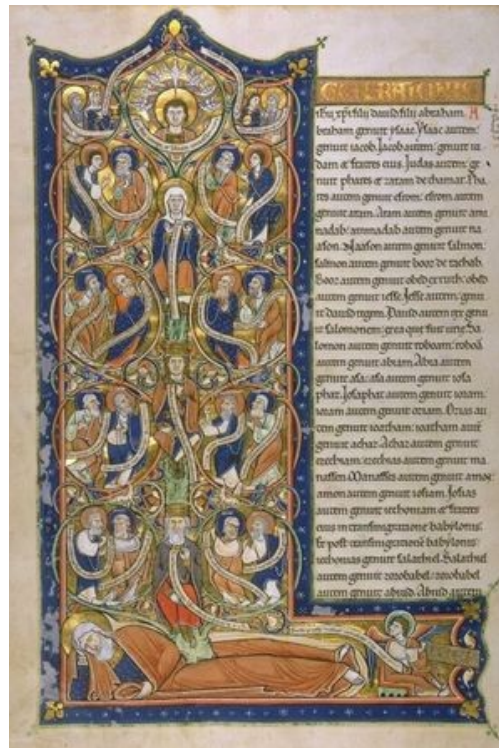 GENERATIONIS
ihu xpi filii dauid filii abraham. A
braham genuit ysaac. Ysaac autem
genuit iacob. Jacob autem genuit iu
dam & fratres eius. Judas autem ge
nuit phares & zaram de thamar. Pha
res autem genuit esrom. esrom autem
genuit aram. Aram autem genuit ami
nadab. aminadab autem genuit na
ason. Naason autem genuit salmon.
salmon autem genuit booz de rachab.
Booz autem genuit obed ex ruth. obed
autem genuit iesse. Jesse autem genu
it dauid regem. Dauid autem rex genu
it salomonem ex ea que fuit urie. Sa
lomon autem genuit roboam. roboā
autem genuit abiam. Abia autem
genuit asa. asa autem genuit iosa
phat. Josaphat autem genuit ioram.
ioram autem genuit oziam. Ozias au
tem genuit ioatham. ioatham autē
genuit achaz. Achaz autem genuit
ezechiam. ezechias autem genuit ma
nassen. Manasses autem genuit amon
amon autem genuit iosiam. Josias
autem genuit iechoniam & fratres
eius in transmigratione babylonis.
Et post transmigratione babylonis
iechonias genuit salathiel. Salathiel
autem genuit zorobabel. zorobabel
autem genuit abiud. Abiud autem